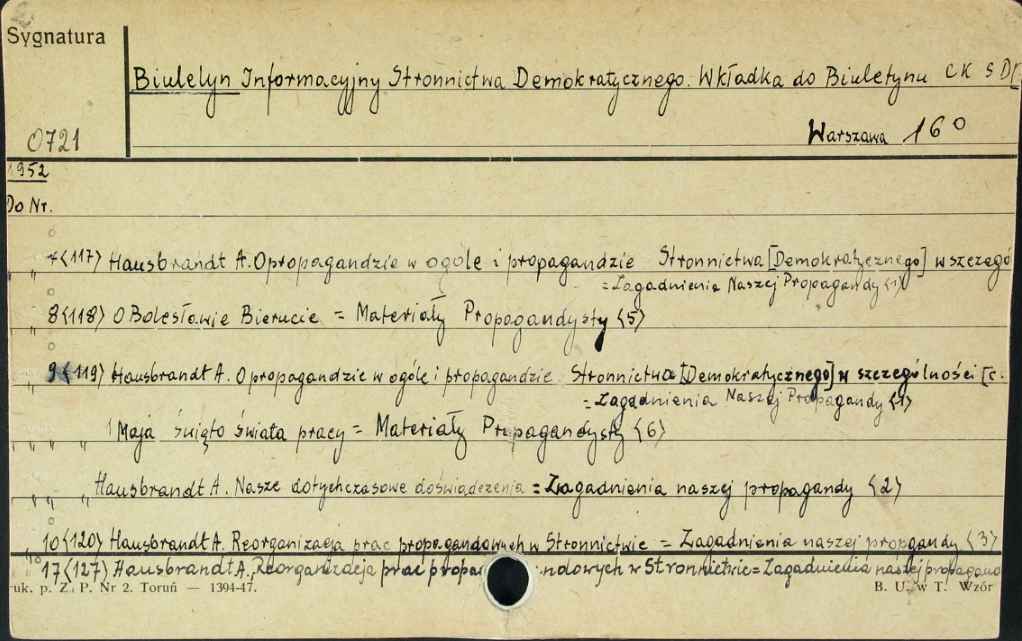 Sygnatura
Biuletyn Informacyjny Stronnictwa Demokratycznego. Wkładka do Biuletynu CK SD[
0721
Warszawa 16°
1952
Do Nr.
" " 7<117> Hausbrandt A. O propagandzie w ogóle i propagandzie Stronnictwa [Demokratycznego] w szczegó
= Zagadnienia Naszej Propagandy <1>
" " 8<118> O Bolesławie Bierucie = Materiały Propagandysty <5>
" 9<119> Hausbrandt A. O propagandzie w ogóle i propagandzie Stronnictwa [Demokratycznego] w szczególności [c.
= Zagadnienia Naszej Propagandy <1>
" " " 1 Maja święto świata pracy = Materiały Propagandysty <6>
" " " Hausbrandt A. Nasze dotychczasowe doświadczenia = Zagadnienia naszej propagandy <2>
" 10<120> Hausbrandt A. Reorganizacja prac propagandowych w Stronnictwie = Zagadnienia naszej propagandy <3>
17<127> Hausbrandt A. Reorganizacja prac propagandowych w Stronnictwie = Zagadnienia naszej propagand
uk. p. Z. P. Nr 2. Toruń — 1394-47.
B. U. w T. Wzór